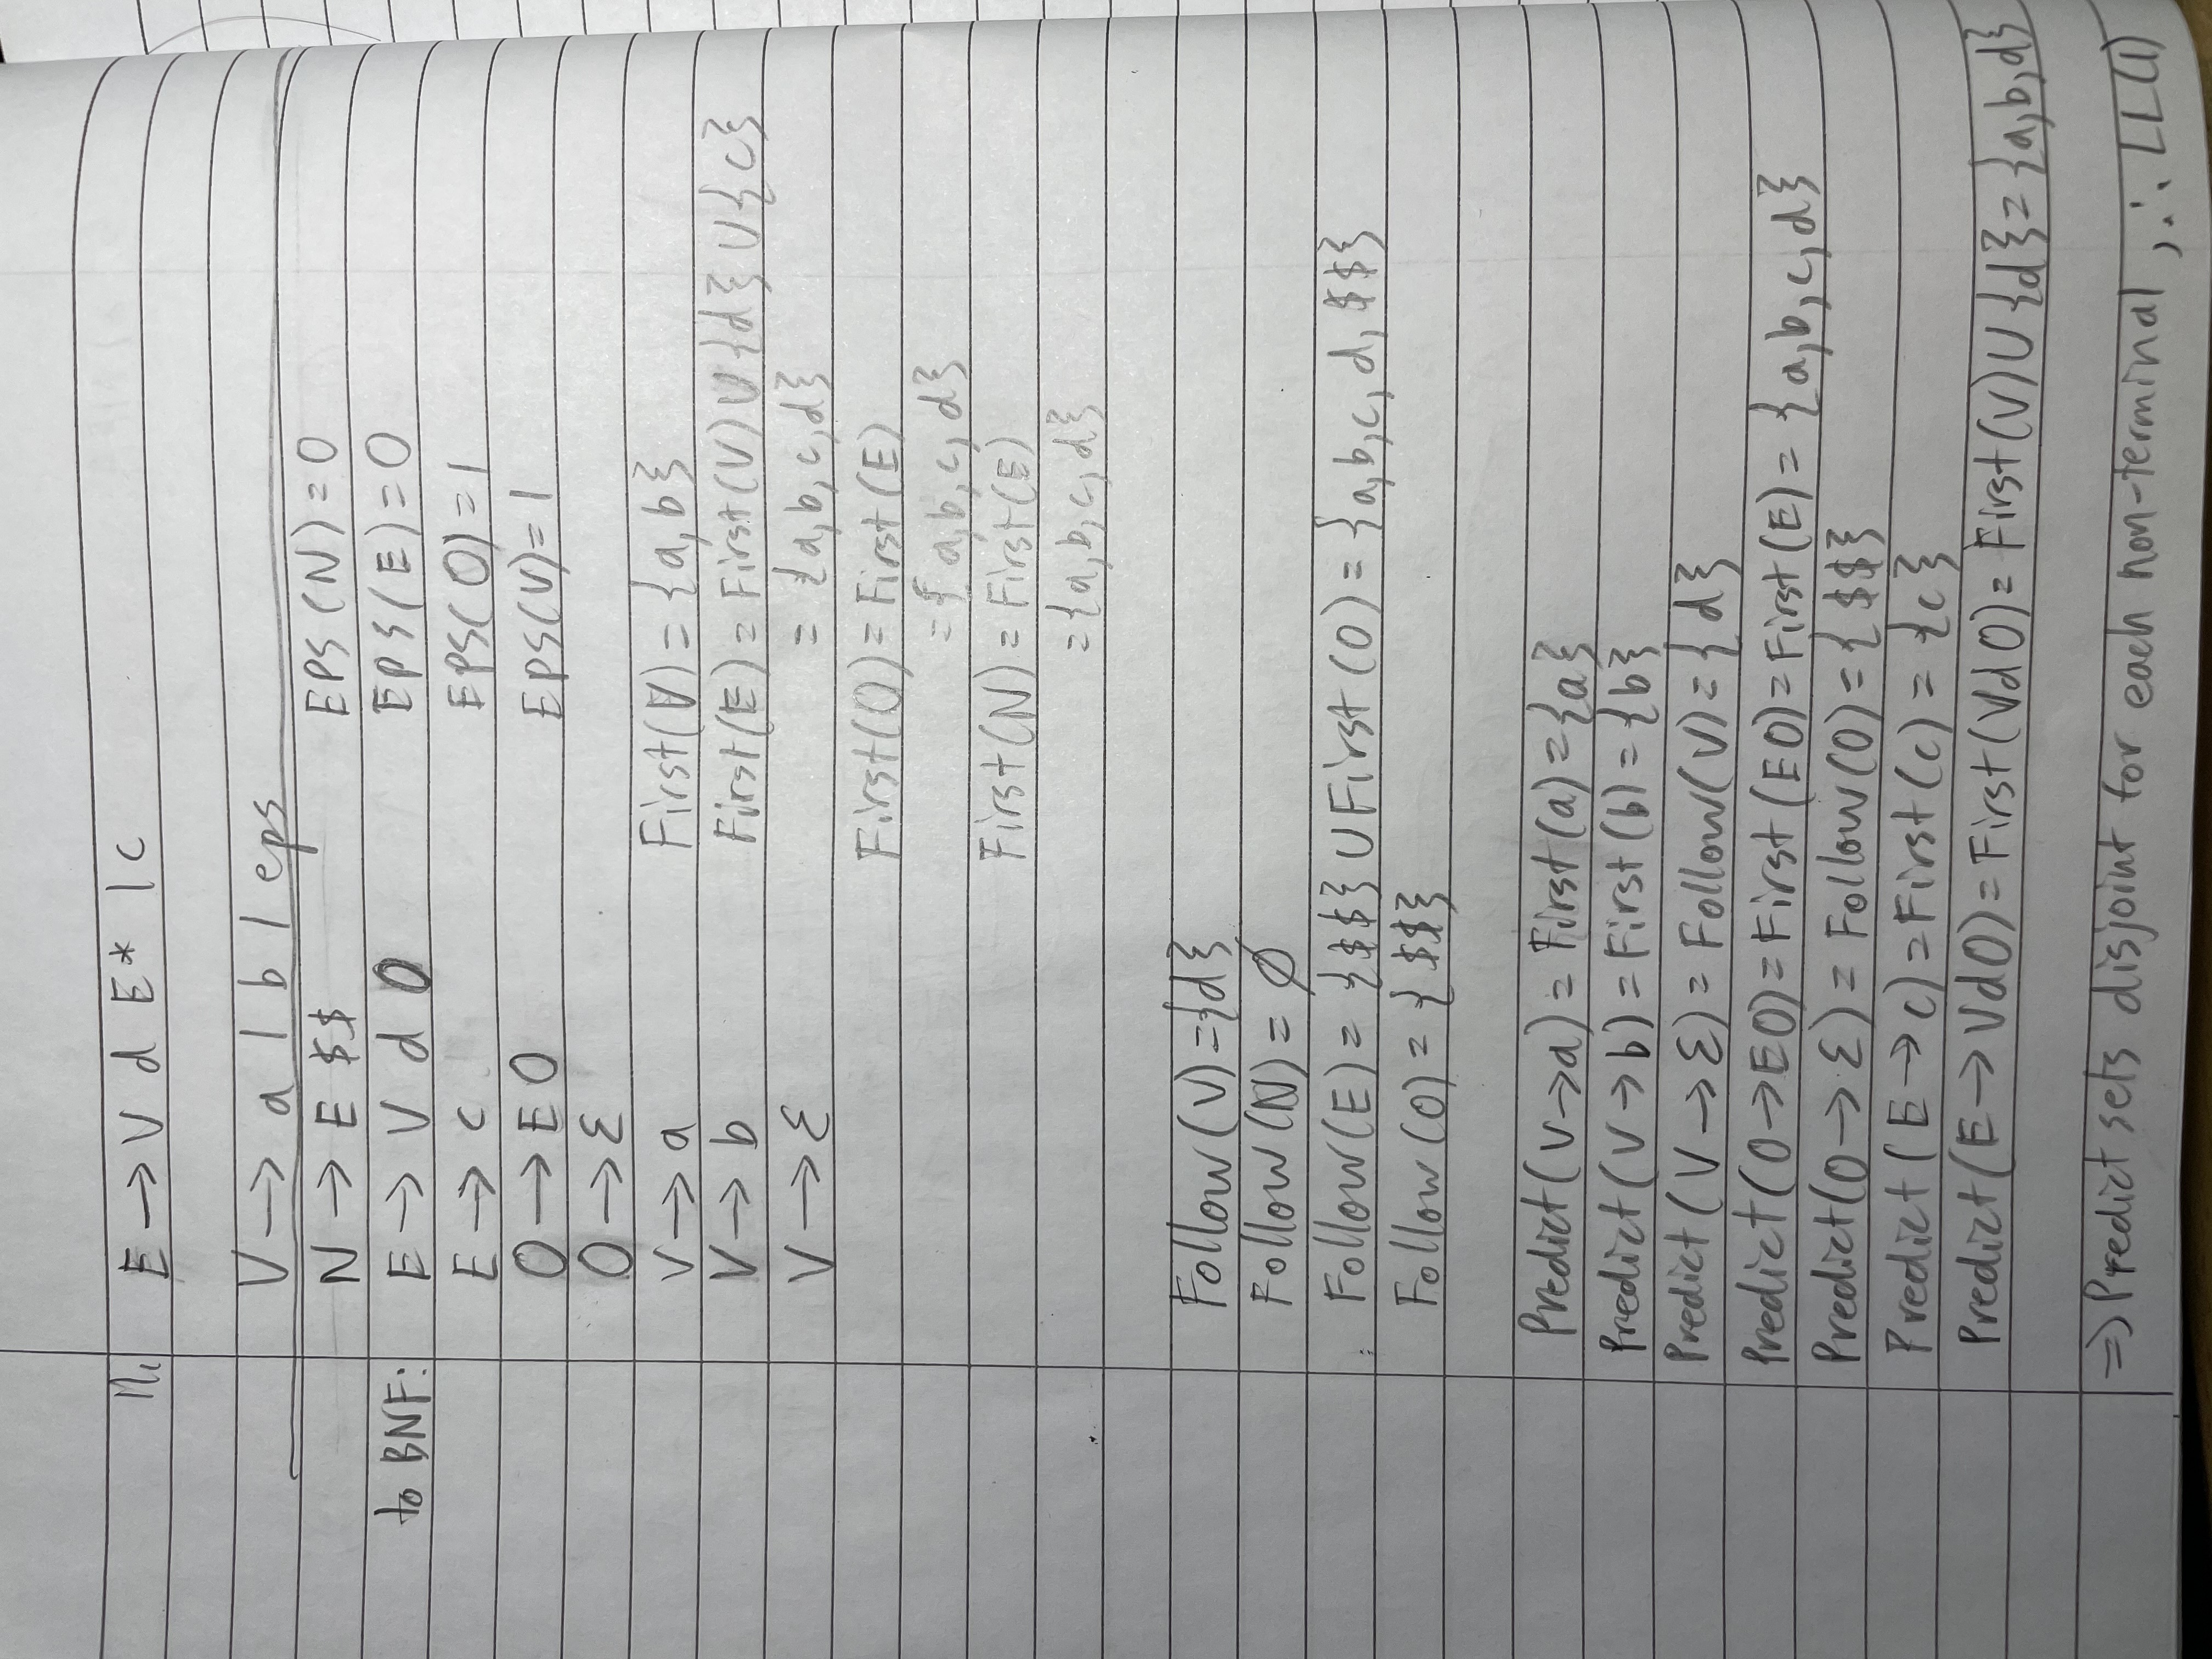 11. E → V d E* | c
V → a | b | eps
N → E $$ EPS(N) = 0
to BNF: E → V d O EPS(E) = 0
E → c EPS(O) = 1
O → E O EPS(V) = 1
O → ε
V → a First(V) = {a, b}
V → b First(E) = First(V) ∪ {d} ∪ {c}
V → ε = {a, b, c, d}
First(O) = First(E)
= {a, b, c, d}
First(N) = First(E)
= {a, b, c, d}
Follow(V) = {d}
Follow(N) = ∅
Follow(E) = {$$} ∪ First(O) = {a, b, c, d, $$}
Follow(O) = {$$}
Predict(V → a) = First(a) = {a}
Predict(V → b) = First(b) = {b}
Predict(V → ε) = Follow(V) = {d}
Predict(O → EO) = First(EO) = First(E) = {a, b, c, d}
Predict(O → ε) = Follow(O) = {$$}
Predict(E → c) = First(c) = {c}
Predict(E → VdO) = First(VdO) = First(V) ∪ {d} = {a, b, d}
⇒ Predict sets disjoint for each non-terminal, ∴ LL(1)